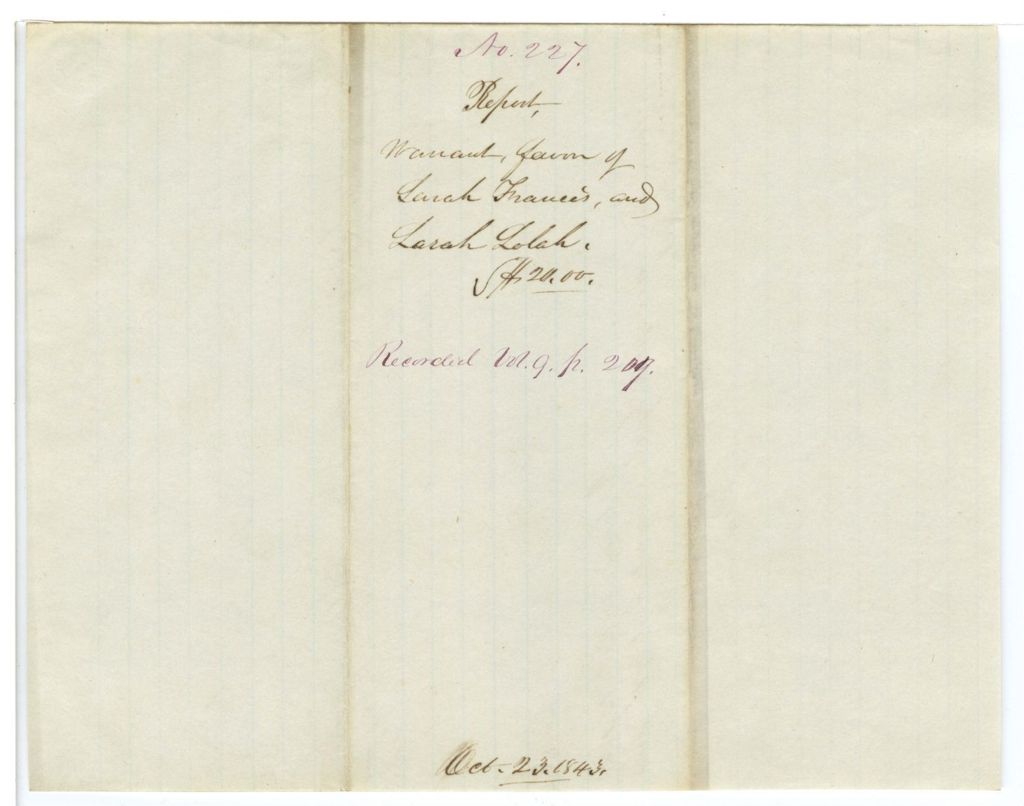 No. 227.
Report,
Warrant, favor of
Sarah Francis, and
Sarah Solah.
$20.00.
Recorded Vol. 9. p. 207.
Oct. 23. 1843.